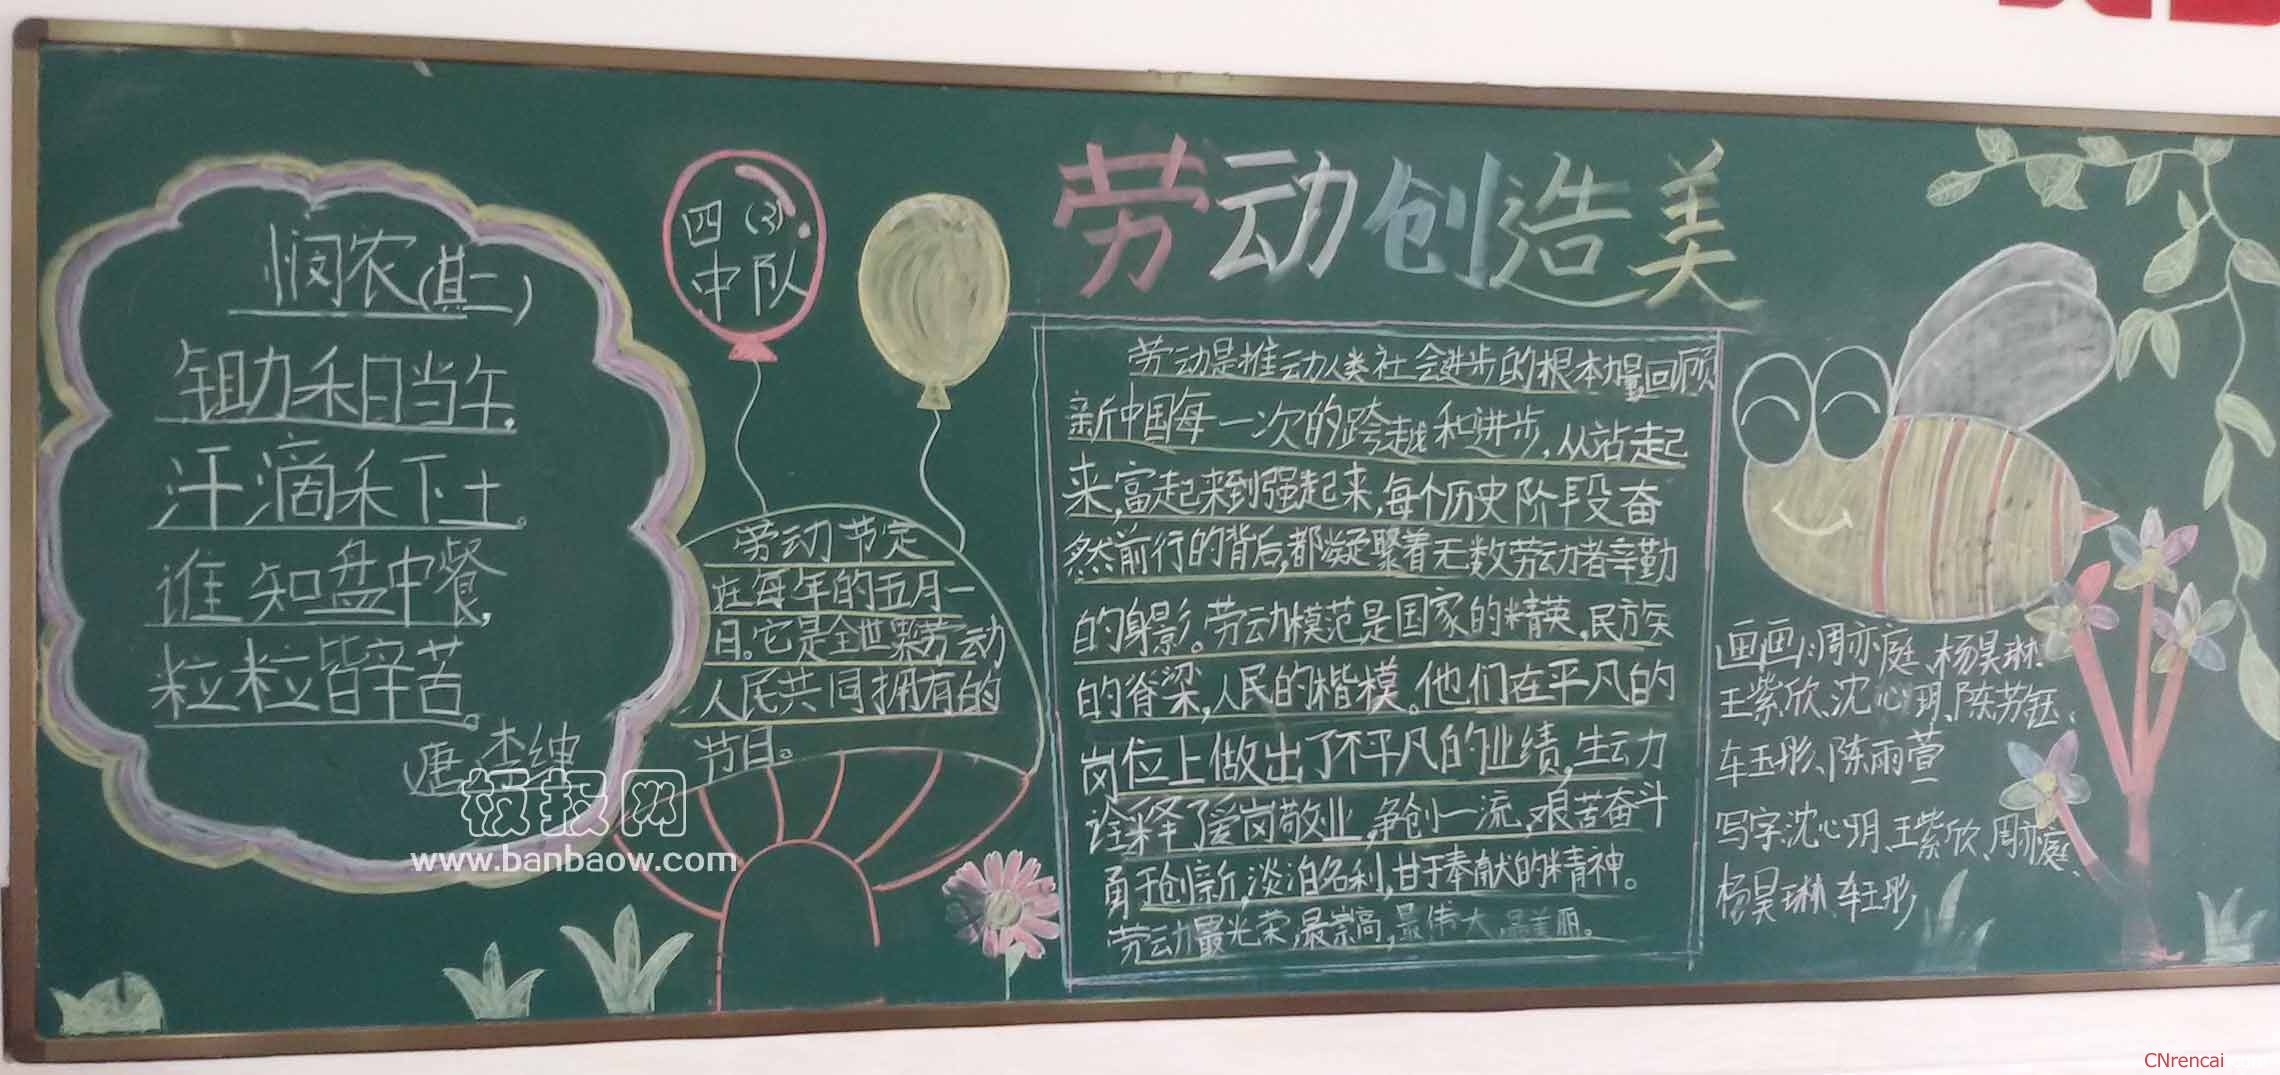 悯农(其二)
锄禾日当午,
汗滴禾下土。
谁知盘中餐,
粒粒皆辛苦。
唐 李绅
四(3)
中队
劳动节定
在每年的五月一
日。它是全世界劳动
人民共同拥有的
节日。
劳动创造美
劳动是推动人类社会进步的根本力量回顾
新中国每一次的跨越和进步,从站起
来,富起来到强起来,每个历史阶段奋
然前行的背后,都凝聚着无数劳动者辛勤
的身影。劳动模范是国家的精英,民族
的脊梁,人民的楷模。他们在平凡的
岗位上做出了不平凡的业绩,生动
诠释了爱岗敬业,争创一流,艰苦奋斗
勇于创新,淡泊名利,甘于奉献的精神。
劳动最光荣,最崇高,最伟大,最美丽。
画画:周亦庭、杨昊琳、
王紫欣、沈心玥、陈芳钰、
车玉彤、陈雨萱
写字:沈心玥、王紫欣、周亦庭、
杨昊琳、车玉彤
板报网
www.banbaow.com
CNrencai